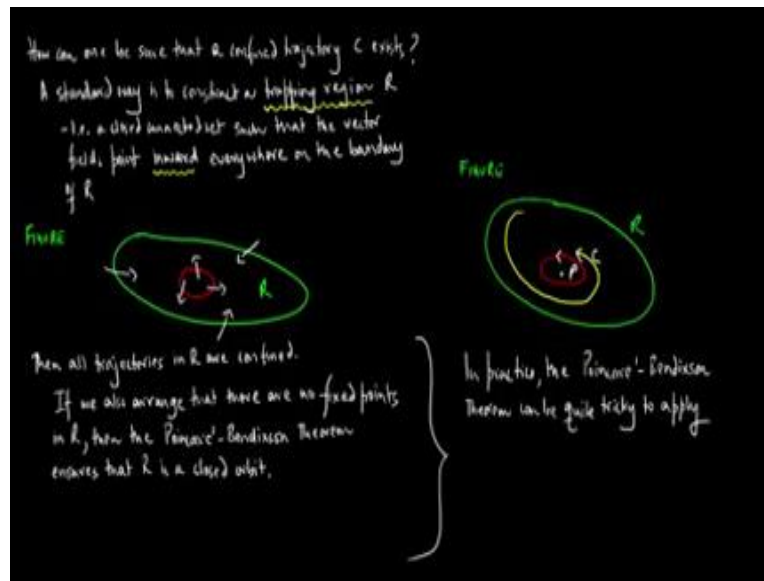 How can one be sure that a confined trajectory C exists?
A standard way is to construct a trapping region R
-i.e. a closed connected set such that the vector
field, point inward everywhere on the boundary
of R
FIGURE
R
Then all trajectories in R are confined.
If we also arrange that there are no fixed points
in R, then the Poincare'-Bendixson Theorem
ensures that R is a closed orbit.
FIGURE
R
C
P
In practice, the Poincare'-Bendixson
Theorem can be quite tricky to apply